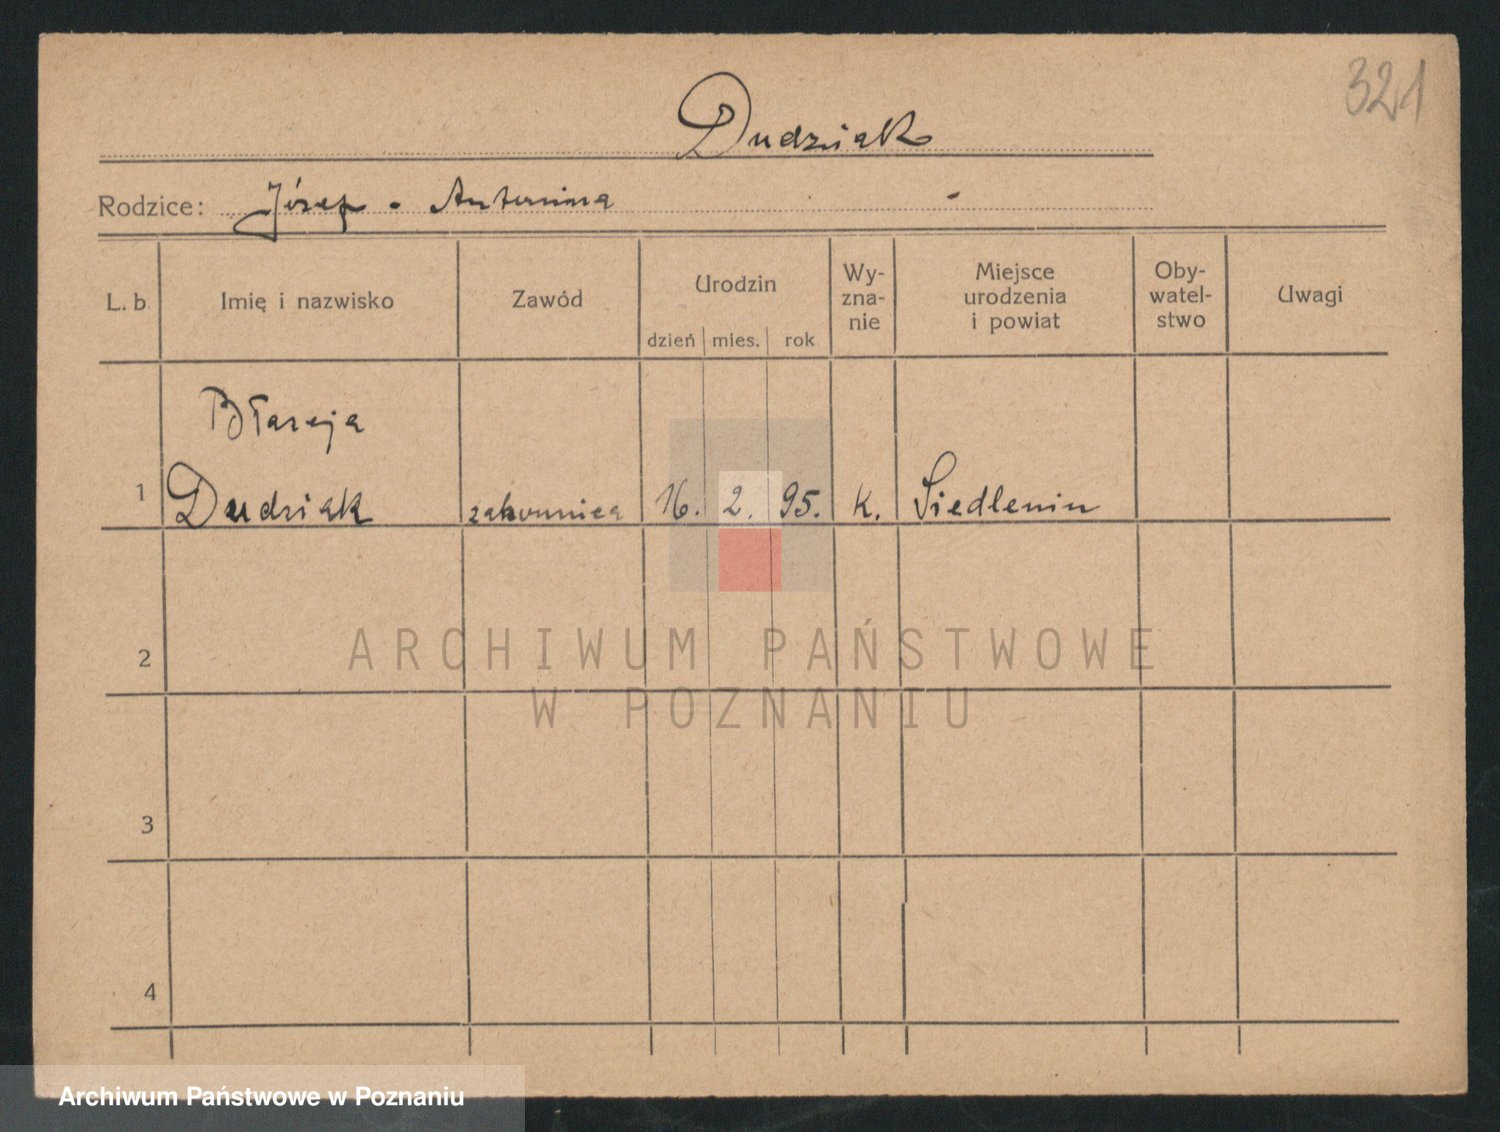 321
Dudziak
Rodzice: Józef - Antonina -
L. b. Imię i nazwisko Zawód Urodzin dzień mies. rok Wy-zna-nie Miejsce urodzenia i powiat Oby-watel-stwo Uwagi
Błażeja
1 Dudziak zakonnica 16. 2. 95. k. Siedlemin
2
3
4
ARCHIWUM PAŃSTWOWE
W POZNANIU
Archiwum Państwowe w Poznaniu